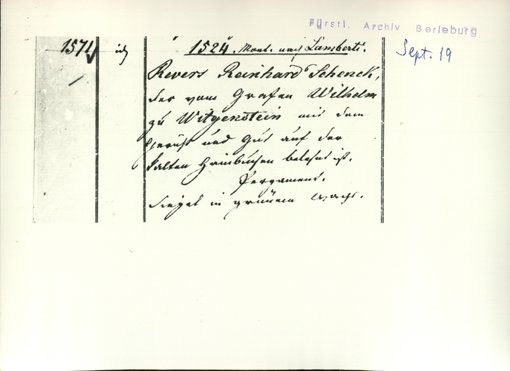 Fürstl. Archiv Berleburg
Sept. 19
1571
1524. Mont. nach Lamberti.
Revers Reinhard Schenck,
der vom Grafen Wilhelm
zu Witgenstein mit dem
und Gut auf der
belehnt ist.
Pergament.
Siegel in grünem Wachs.